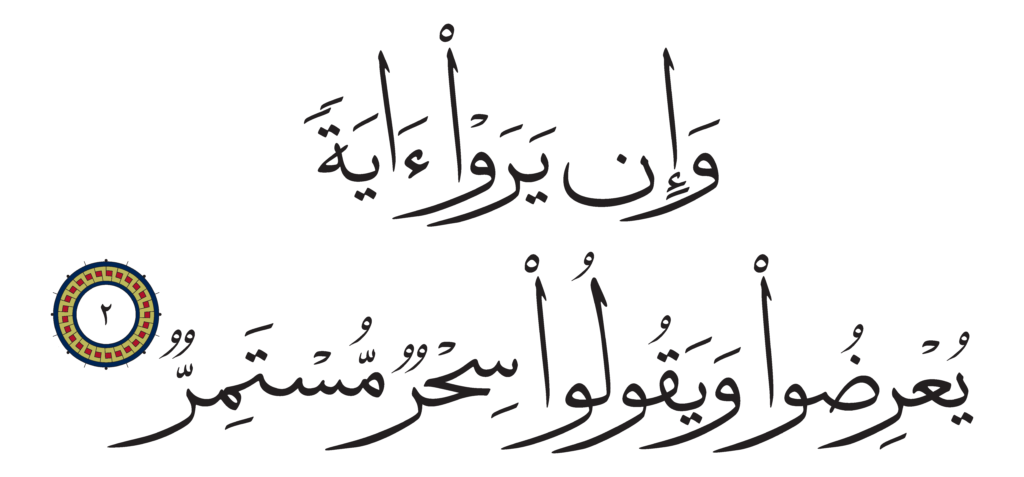 وَإِن يَرَوْا۟ ءَايَةًۭ
يُعْرِضُوا۟ وَيَقُولُوا۟ سِحْرٌۭ مُّسْتَمِرٌّۭ ٢